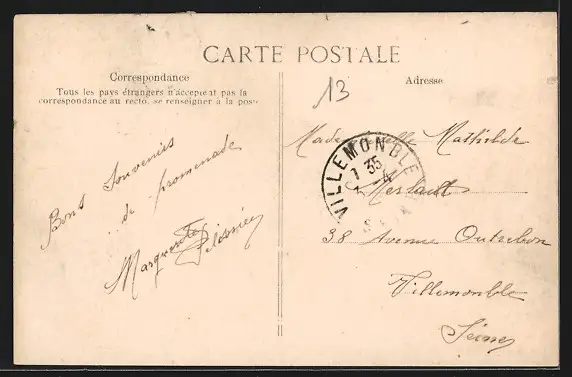 CARTE POSTALE
Correspondance
Tous les pays étrangers n'acceptent pas la
correspondance au recto, se renseigner à la poste
Bons Souvenirs
de promenade
Marguerite
Adresse
13
Mademoiselle Mathilde
38 Avenue Outrebon
Villemonble
Seine
VILLEMONBLE
1 35
4